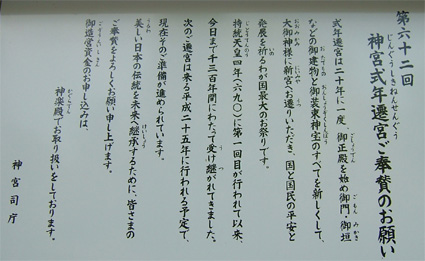 第六十二回
神宮式年遷宮ご奉賛のお願い
式年遷宮は二十年に一度、御正殿を始め御門・御垣
などの御建物と御装束神宝のすべてを新しくして、
大御神様に新宮へお遷りいただき、国と国民の平安と
発展を祈るわが国最大のお祭りです。
持統天皇四年(六九〇)に第一回目が行われて以来、
今日まで千三百年間にわたって受け継がれてきました。
次のご遷宮は来る平成二十五年に行われる予定で、
現在そのご準備が進められています。
美しい日本の伝統を未来へ継承するために、皆さまの
ご奉賛をよろしくお願い申し上げます。
御造営資金のお申し込みは、
神楽殿でお取り扱いをしております。
神宮司庁